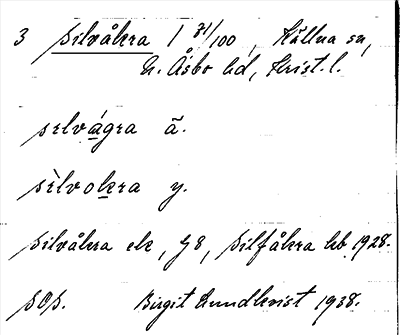 3 Silvåkra 1 31/100, Källna sn,
N. Åsbo hd, Krist. l.
sɛlvágra ä.
sìlvokera y.
Silvåkra ek, G8, Silfåkra kb 1928.
SOS. Birgit Lundkvist 1938.